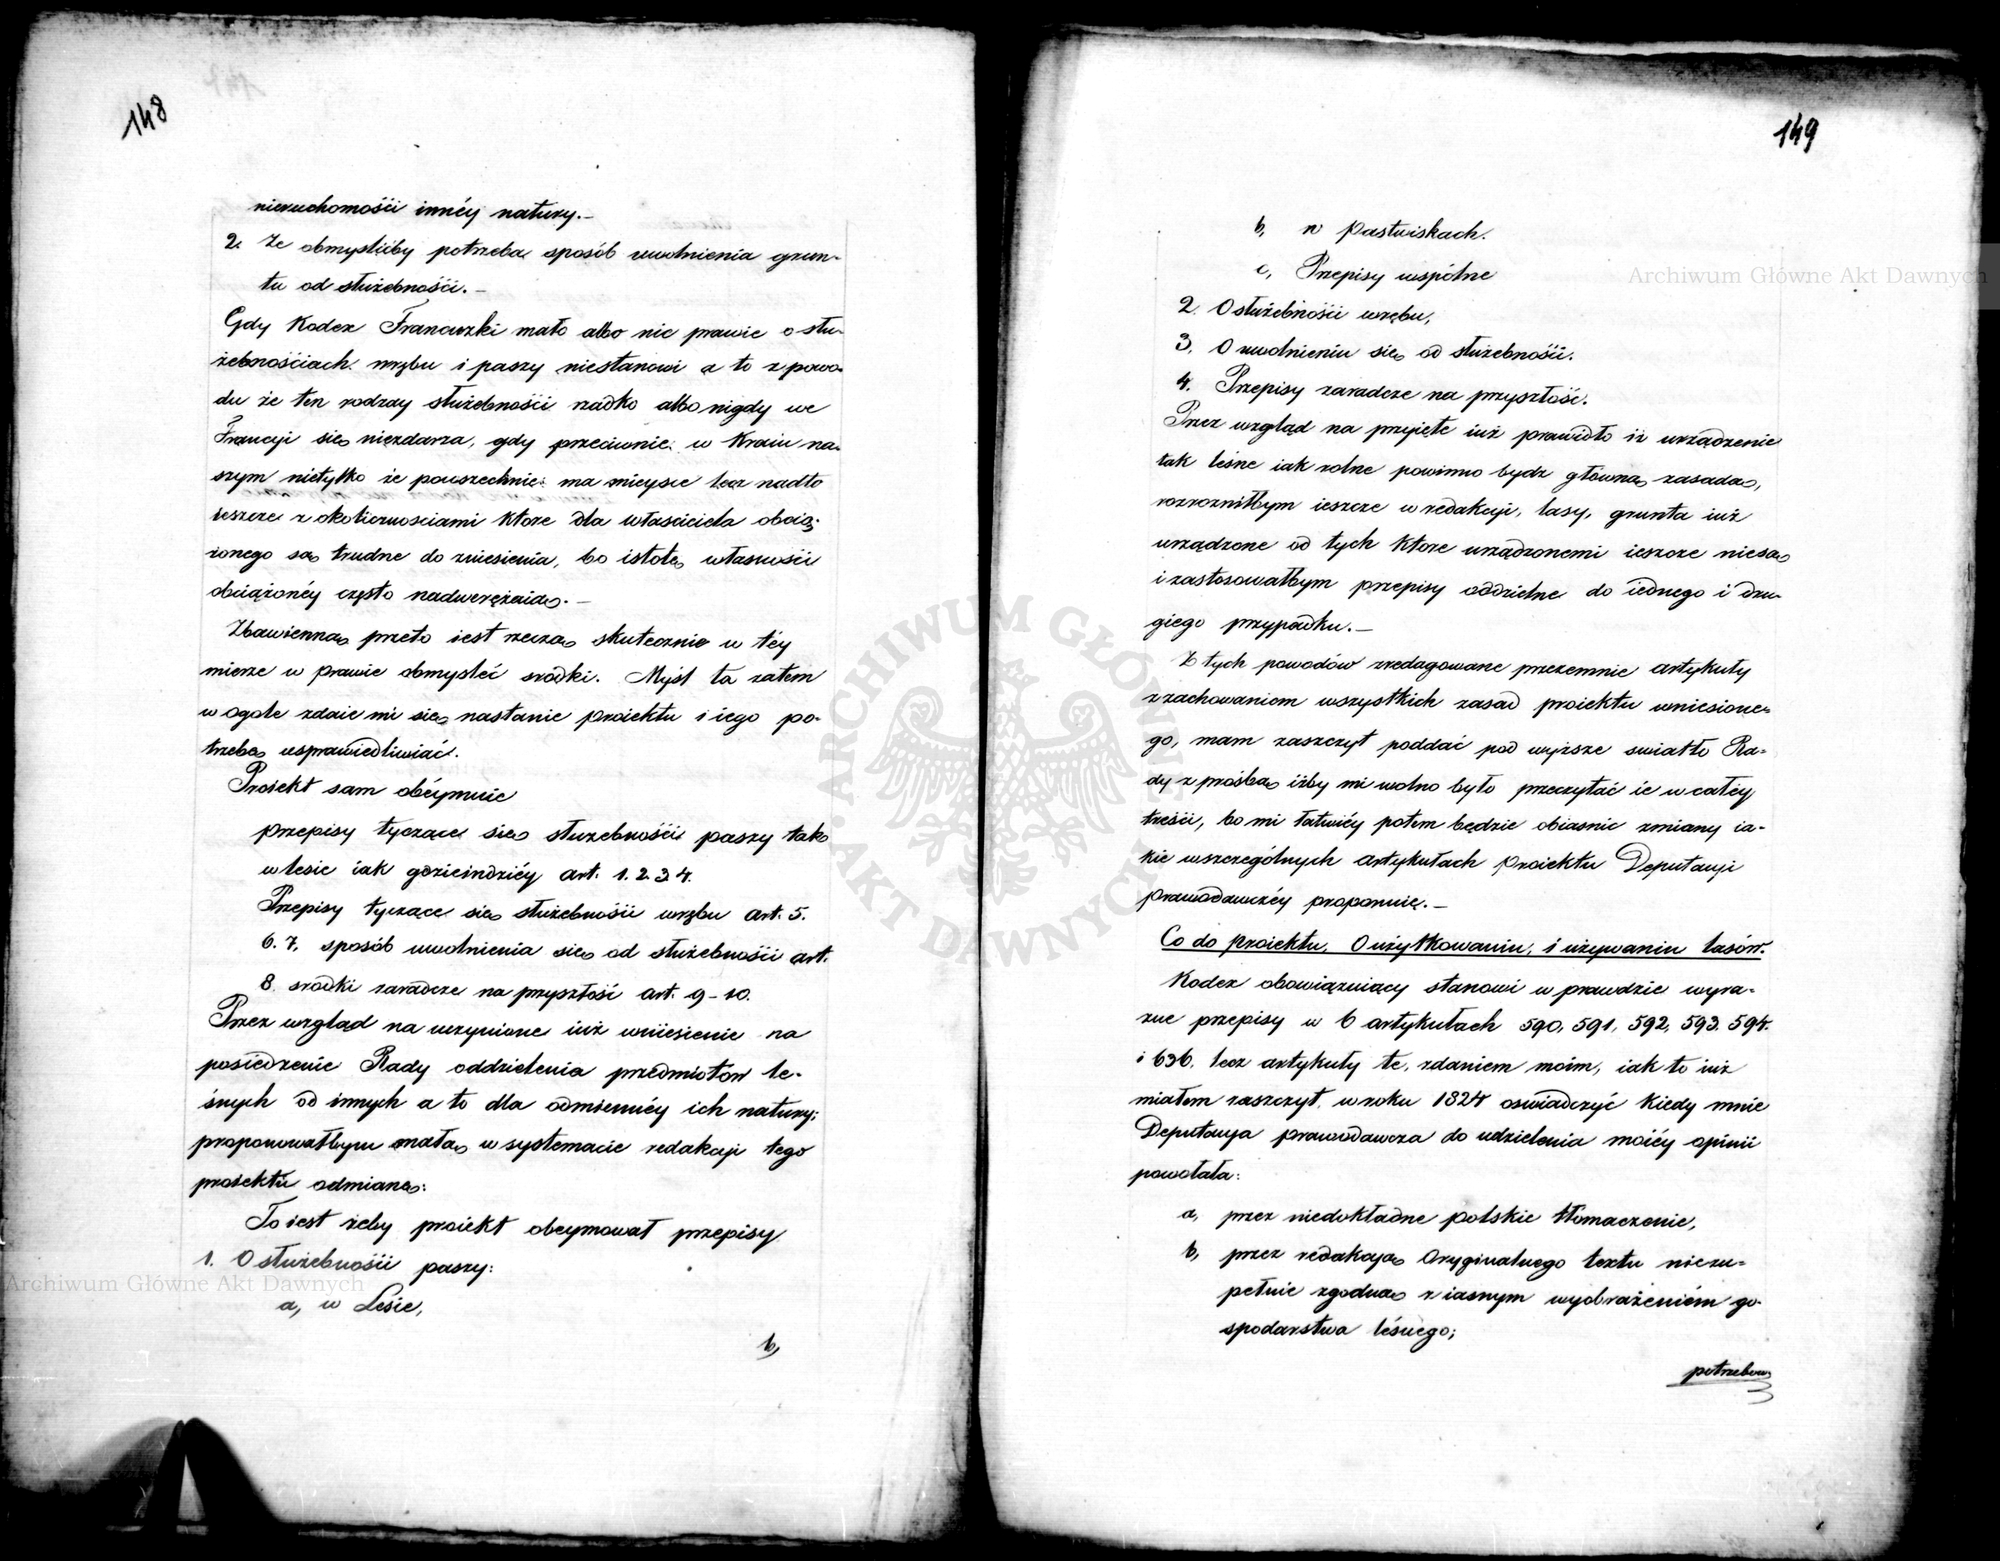 148
nieruchomości innéy natury.—
2. Że obmyślićby potrzeba sposób uwolnienia grun-
tu od służebności.—
Gdy Kodex Francuzki mało albo nic prawie o słu-
żebnościach wrębu i paszy niestanowi a to z powo-
du że ten rodzay służebności rzadko albo nigdy we
Francyi się niezdarza, gdy przeciwnie w Kraiu na-
szym nietylko że powszechnie ma mieysce lecz nadto
ieszcze z okolicznosciami ktore dla właściciela obcią-
żonego są trudne do zniesienia, bo istotę własności
obciążonéy często nadwerężaią.—
Zbawienną przeto iest rzeczą skutecznie w téy
mierze w prawie obmysleć srodki. Myśl ta zatem
w ogole zdaie mi się nastanie proiektu i iego po-
trzebę usprawiedliwiać.
Proiekt sam obéymuie
przepisy tyczące się służebności paszy tak
w lesie iak gdzieindziéy art. 1. 2. 3. 4.
Przepisy tyczące się służebności wrębu art. 5.
6. 7. sposób uwolnienia się od służebności art.
8. srodki zaradcze na przyszłość art. 9-10.
Przez wzgląd na uczynione iuż wniesienie na
posiedzenie Rady oddzielenia przedmiotów le-
śnych od innych a to dla odmiennéy ich natury;
proponowałbym małą w systemacie redakcyi tego
proiektu odmianę:
To iest żeby proiekt obeymował przepisy
1. O służebności paszy:
a, w Lesie,
b,
149
b, w Pastwiskach.
c, Przepisy wspólne
2. O służebności wrębu,
3. O uwolnieniu się od służebności.
4. Przepisy zaradcze na przyszłość.
Przez wzgląd na przyięte iuż prawidło iż urządzenie
tak leśne iak rolne powinno bydz główną zasadą,
rozrozniłbym ieszcze w redakcyi, lasy, grunta iuż
urządzone od tych ktore urządzonemi ieszcze niesą
i zastosowałbym przepisy oddzielne do iednego i dru-
giego przypadku.—
Z tych powodów zredagowane przezemnie artykuły
z zachowaniem wszystkich zasad proiektu wniesione-
go, mam zaszczyt poddać pod wyższe swiatło Ra-
dy z prośbą iżby mi wolno było przeczytać ie w całéy
treści, bo mi łatwiéy potem będzie obiasnic zmiany ia-
kie wszczególnych artykułach proiektu Deputacyi
prawodawczéy proponuię.—
Co do proiektu, O użytkowaniu, i używaniu lasów.
Kodex obowiązuiący stanowi w prawdzie wyra-
zne przepisy w 6 artykułach 590, 591, 592, 593. 594.
i 636. lecz artykuły te, zdaniem moim, iak to iuż
miałem zaszczyt, w roku 1824 oswiadczyć kiedy mnie
Deputacya prawodawcza do udzielenia moiéy opinii
powołała:
a, przez niedokładne polskie tłomaczenie,
b, przez redakcyą oryginalnego textu niezu-
pełnie zgodną z iasnym wyobrażeniém go-
spodarstwa leśnego;
potrzebuią
Archiwum Główne Akt Dawnych
Archiwum Główne Akt Dawnych
ARCHIWUM GŁÓWNE AKT DAWNYCH